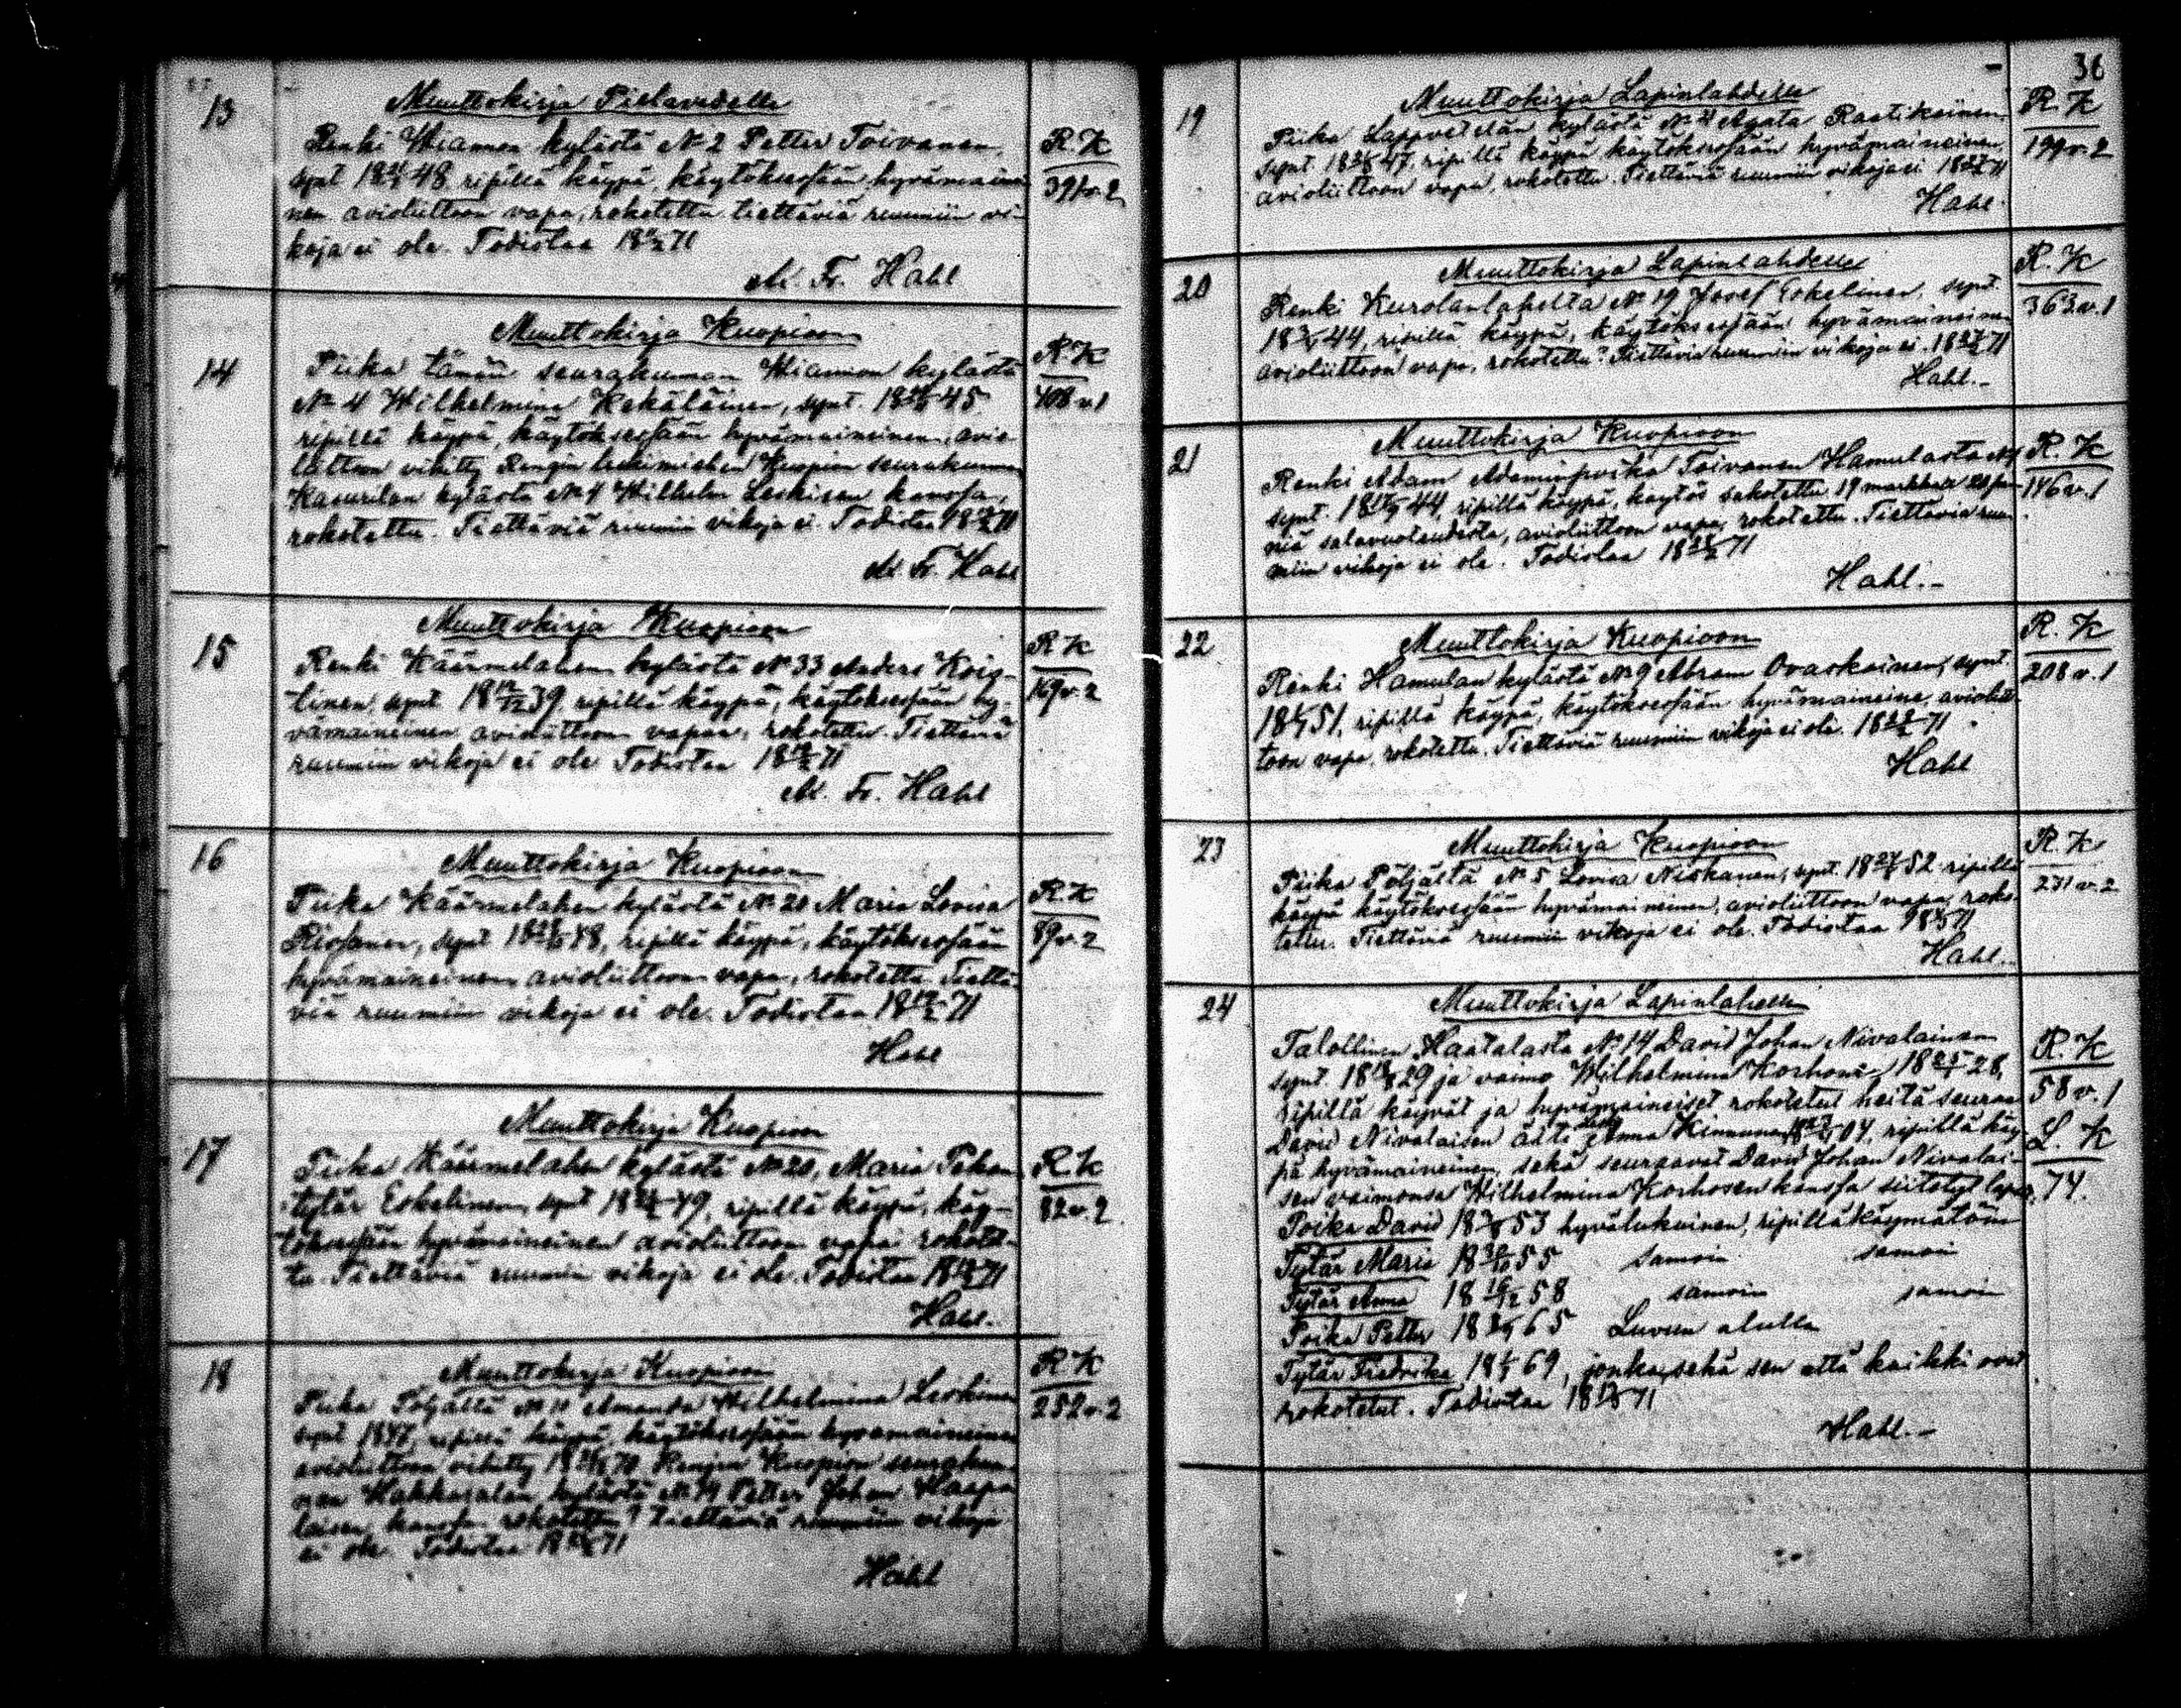 13
Muuttokirja Pielavedelle
Renki Hiamon kylästä No 2 Petter Toivanen,
synt 18 48, ripillä käypä, käytöksessään hyvämainei
nen avioliittoon vapa, rokotettu tiettäviä ruumiin vi-
koja ei ole. Todistaa 18 71
M. Fr. Hahl
R. K
391 v. 2
14
Muuttokirja Kuopioon
Piika tämän seurakunnan Hiamon kylästä
No 4 Wilhelmina Kekäläinen, synt. 18 45
ripillä käypä, käytöksessään hyvämaineinen, avio-
liittoon vihitty Rengin Kuopion seurakunnan
Kasurilan kylästä No 4 Wilhelm Leskisen kanssa,
rokotettu. Tiettäviä ruumiin vikoja ei. Todistaa 18 71
M. Fr. Hahl
R K
408 v. 1
15
Muuttokirja Kuopioon
Renki Käärmelahen kylästä No 33 Anders Kois-
tinen, synt 18 12/12 39, ripillä käypä, käytöksessään hy-
vämaineinen avioliittoon vapaa, rokotettu. Tiettäviä
ruumiin vikoja ei ole Todistaa 18 71
M. Fr. Hahl
R K
169 v. 2
16
Muuttokirja Kuopioon
Piika Käärmelahen kylästä No 20 Maria Lovisa
Rissanen, synt 18 48, ripillä käypä, käytöksessään
hyvämaineinen avioliittoon vapa, rokotettu. Tiettä-
viä ruumiin vikoja ei ole. Todistaa 18 71
Hahl
R. K
89 v. 2
17
Muuttokirja Kuopioon
Piika Käärmelahen kylästä No 20, Maria Pekan
tytär Eskelinen, synt 18 49, ripillä käypä, käy-
töksessään hyvämaineinen avioliittoon vapa rokotet-
tu. Tiettäviä ruumiin vikoja ei ole. Todistaa 18 71
Hahl.
R. K
82 v. 2
18
Muuttokirja Kuopioon
Piika Pöljältä No 11 Amanda Wilhelmina Leskinen
synt 1847, ripillä käypä, käytöksessään hyvämaineinen
avioliittoon vihitty 18 70 Rengin Kuopion seurakun-
nan Hakkaralan kylästä No 14 Petter Johan Haapa
laisen kanssa, rokotettu? tiettäviä ruumiin vikoja
ei ole. Todistaa 18 71
Hahl
R K
252 v. 2
36
19
Muuttokirja Lapinlahdelle
Piika Lappvetelän kylästä No Agata Raatikainen
synt. 18 47, ripillä käypä käytöksessään hyvämaineinen,
avioliittoon vapa, rokotettu. Tiettäviä ruumiin vikoja ei 18 71
Hahl.
R. K
199 v. 2
20
Muuttokirja Lapinlahdelle
Renki Kurolanlahelta No 19 Josef Eskelinen, synt.
18 44, ripillä käypä, käytöksessään hyvämaineinen
avioliittoon vapa, rokotettu? Tiettäviä ruumiin vikoja ei. 18 71
Hahl.-
R. K
363 v. 1
21
Muuttokirja Kuopioon
Renki Adam Adaminpoika Toivanen Hamulasta No
synt. 18 44, ripillä käypä, käytös sakotettu 19 markkaa 20 pen-
niä salavuoteudesta, avioliittoon vapa, rokotettu. Tiettäviä ruu-
miin vikoja ei ole. Todistaa 18 71
Hahl.-
R. K
146 v. 1
22
Muuttokirja Kuopioon
Renki Hamulan kylästä No 9 Abram Ovaskainen, synt.
18 51, ripillä käypä, käytöksessään hyvämaineine, avioliit-
toon vapa, rokotettu. Tiettäviä ruumiin vikoja ei ole. 18 71
Hahl
R. K
208 v. 1
23
Muuttokirja Kuopioon
Piika Pöljältä No 5 Lovisa Niskanen, synt. 18 52 ripillä
käypä käytöksessään hyvämaineinen, avioliittoon vapa, roko-
tettu. Tiettäviä ruumiin vikoja ei ole. Todistaa 18 71
Hahl.-
R. K
271 v. 2
24
Muuttokirja Lapinlahelle
Talollinen Haatalasta No 14 David Johan Nivalainen
synt. 18 29 ja vaimo Wilhelmina Korhonen, 18 28,
ripillä käyvät ja hyvämaineiset rokotetut heitä seuraa
David Nivalaisen äiti Leski Anna Kinnunen 04, ripillä käy-
pä hyvämaineinen, sekä seuraavat David Johan Nivalai-
sen vaimonsa Wilhelmina Korhosen kanssa siitetyt lapset,
Poika David 18 53 hyvälukuinen, ripillä käymätöin
Tytär Maria 18 55 samoin samoin
Tytär Anna 18 58 samoin samoin
Poika Petter 18 65 Luvun alulla
Tytär Fredrika 18 69, jonka sekä sen että kaikki ovat
rokotetut. Todistaa 18 71
Hahl.-
R. K
58 v. 1
L. K
74.